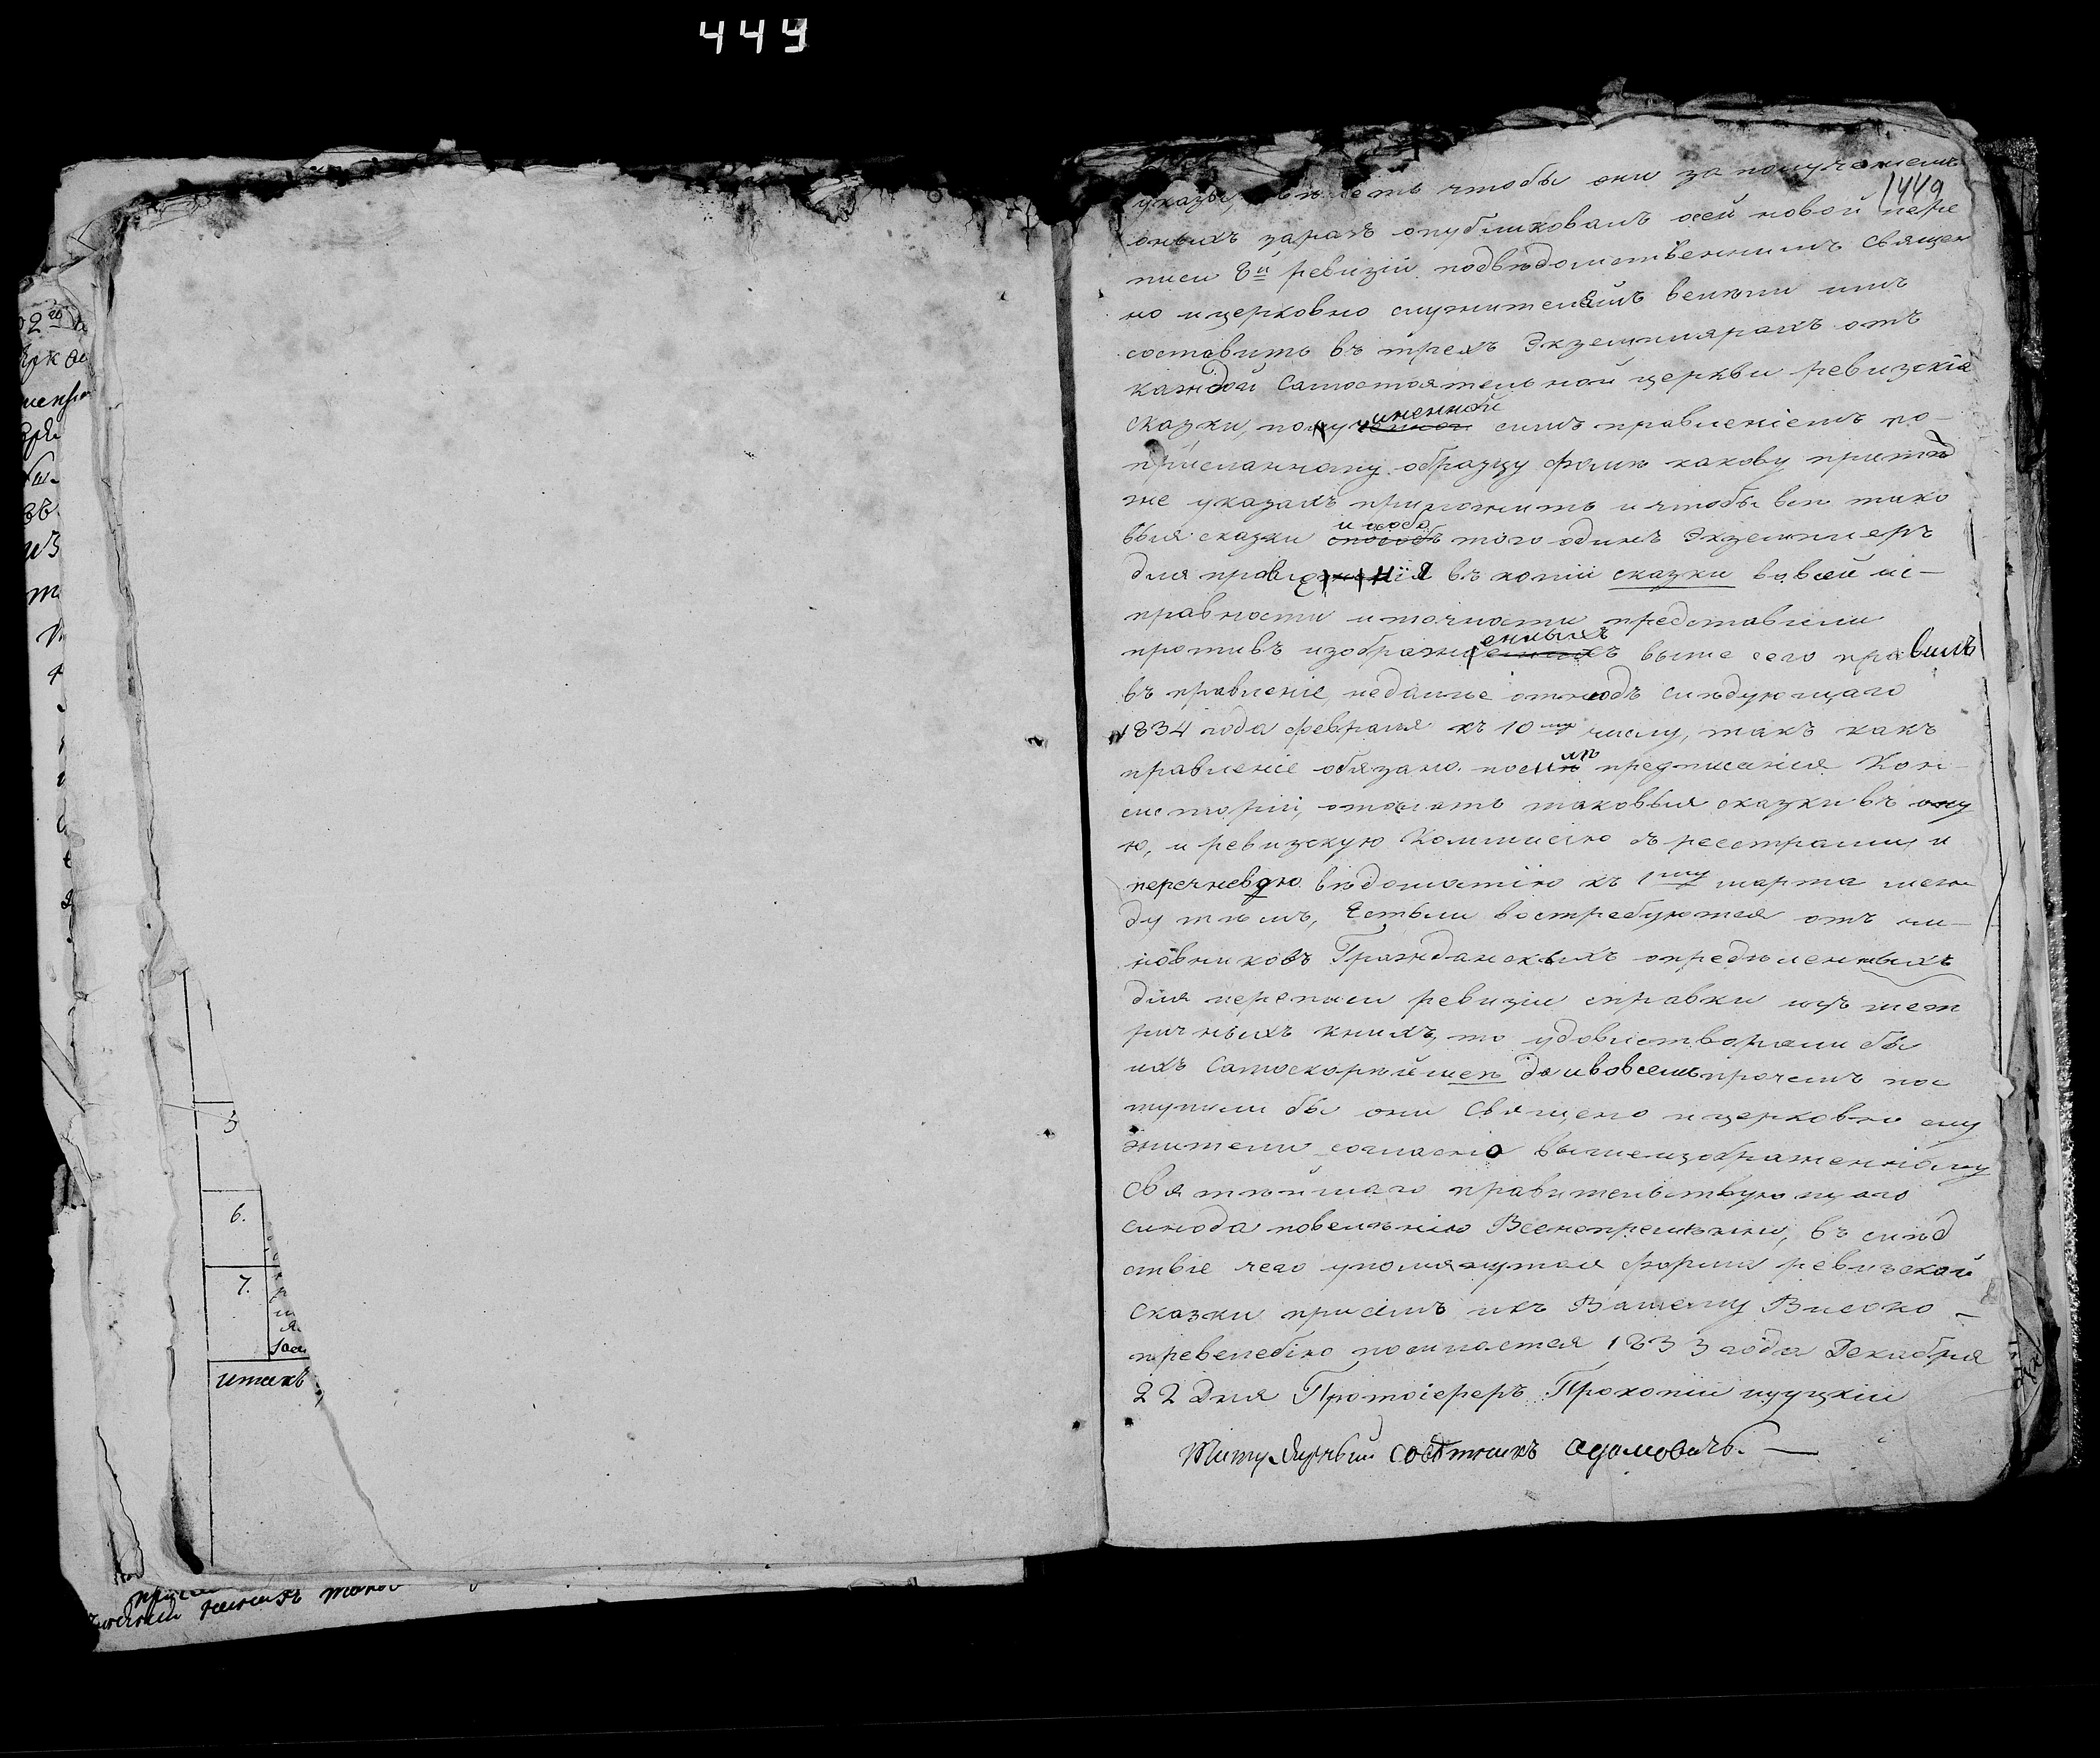 449
указы, велеть чтобы они за получениемъ
449
оныхъ заразъ опубликовалъ осей новой пере
писи 8й ревизіи подвѣдомственнимъ священ
но и церковно служителямъ велѣли имъ
составить въ трехъ Экземплярахъ отъ
каждой самостоятельной церкви ревизскіе
сказки, по ученной
иненной
симъ правленіемъ по-
присланному образцу форми какову притѣ
же указахъ приложить и чтобы всѣ тако
выя сказки способъ того одинъ Экземпляръ
и особо
для правленія въ копіи сказки вовсей ис-
правности и точности представили
противъ изображенныхъ выше сего правилъ
енныхъ
въ правленіе недалее отнюдъ слѣдующаго
1834 года февраля къ 10му числу, такъ какъ
правленіе обязано послѣ предписанія Кон-
систоріи, отослать таковыя сказки въ ону
ю, и ревизскую Коммисію съ реестрами, и
перечневую вѣдомостію къ 1му марта меж
ду тѣмъ, Естьли востребуются отъ чи-
новниковъ Гражданскихъ опредѣленныхъ
для переписи ревизіи справки изъ мет
ричныхъ книхъ, то удовлетворяли бы
ихъ самоскорѣйше да и вовсемъ прочемъ пос
тупили бы они священо и церковно слу
жители согласно вышеизображенному
святѣйшаго правительствующаго
синода повелѣнію Всенепремѣнно, въ слѣд
ствіе чего упомянутая форма ревизской
сказки присемъ къ Вашему Високо-
превелебію посилается 1833 года Декабря
22 Дня Протоіереръ Прокопій
Титулярный совѣтникъ Адамовичъ.
3
6.
7.
итакъ